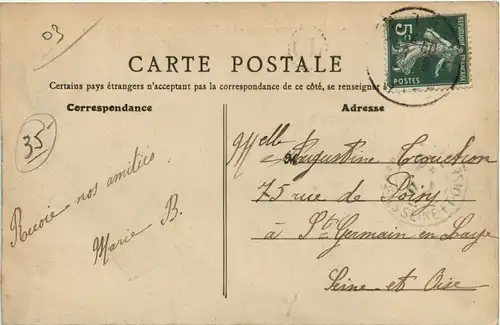 03
CARTE POSTALE
Certains pays étrangers n'acceptant pas la correspondance de ce côté, se renseigner à
Correspondance
Adresse
35-
5c
POSTES
Melle Augustine
75 rue de Poissy
à St Germain en Laye
Seine et Oise
nos amitiés
Marie B.